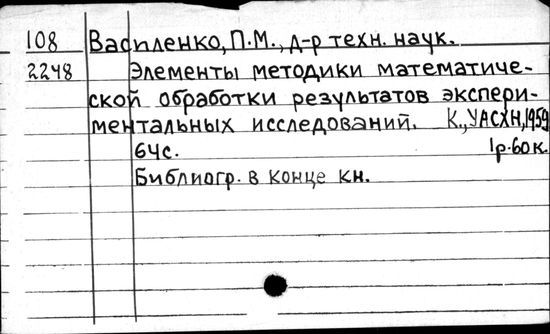 108 Василенко, П.М., д-р техн. наук.
2248 Элементы методики математиче-
ской обработки результатов экспери-
ментальных исследований. К., УАСХН, 1959
64с. 1р.60к.
Библиогр. в конце кн.